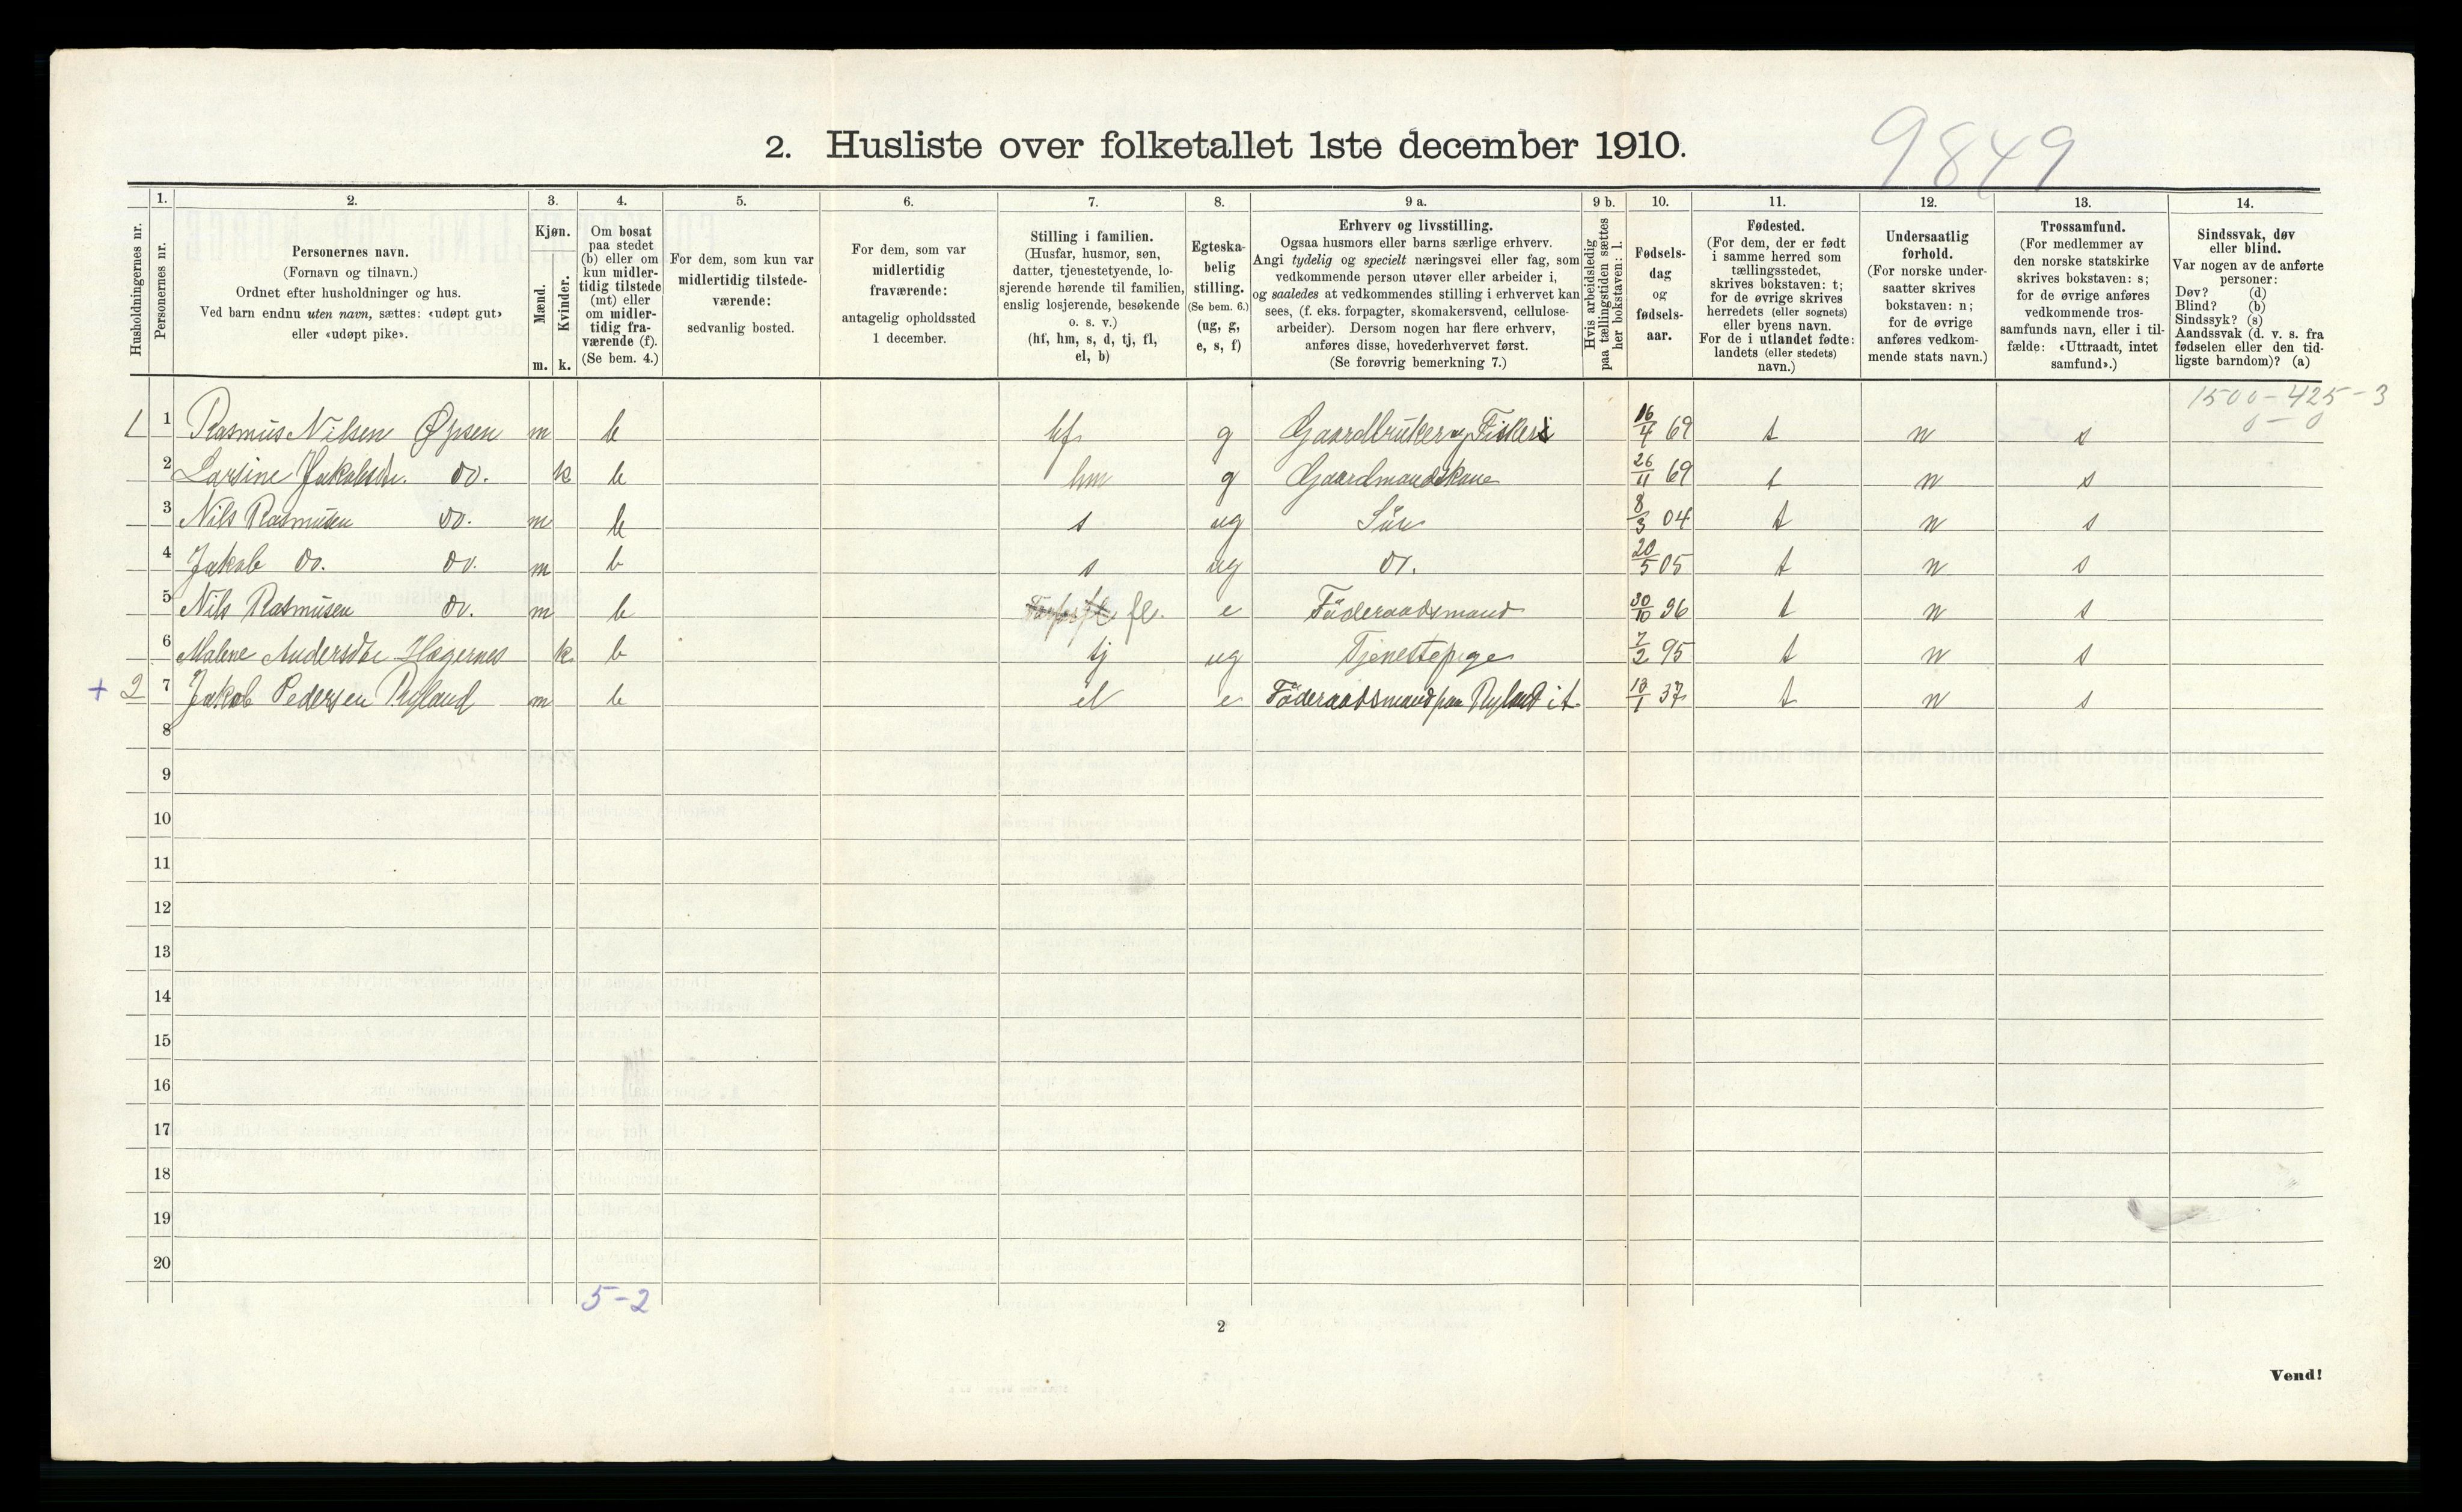 2. Husliste over folketallet 1ste december 1910.
9849
1. 2. 3. 4. 5. 6. 7. 8. 9 a. 9 b. 10. 11. 12. 13. 14.
Husholdningernes nr.
Personernes nr.
Personernes navn.
(Fornavn og tilnavn.)
Ordnet efter husholdninger og hus.
Ved barn endnu uten navn, sættes: «udøpt gut»
eller «udøpt pike».
Kjøn.
Mænd.
Kvinder.
m. k.
Om bosat
paa stedet
(b) eller om
kun midler-
tidig tilstede
(mt) eller
om midler-
tidig fra-
værende (f).
(Se bem. 4.)
For dem, som kun var
midlertidig tilstede-
værende:
sedvanlig bosted.
For dem, som var
midlertidig
fraværende:
antagelig opholdssted
1 december.
Stilling i familien.
(Husfar, husmor, søn,
datter, tjenestetyende, lo-
sjerende hørende til familien,
enslig losjerende, besøkende
o. s. v.)
(hf, hm, s, d, tj, fl,
el, b)
Egteska-
belig
stilling.
(Se bem. 6.)
(ug, g,
e, s, f)
Erhverv og livsstilling.
Ogsaa husmors eller barns særlige erhverv.
Angi tydelig og specielt næringsvei eller fag, som
vedkommende person utøver eller arbeider i,
og saaledes at vedkommendes stilling i erhvervet kan
sees, (f. eks. forpagter, skomakersvend, cellulose-
arbeider). Dersom nogen har flere erhverv,
anføres disse, hovederhvervet først.
(Se forøvrig bemerkning 7.)
Hvis arbeidsledig
paa tællingstiden sættes
her bokstaven: l.
Fødsels-
dag
og
fødsels-
aar.
Fødested.
(For dem, der er født
i samme herred som
tællingsstedet,
skrives bokstaven: t;
for de øvrige skrives
herredets (eller sognets)
eller byens navn.
For de i utlandet fødte:
landets (eller stedets)
navn.)
Undersaatlig
forhold.
(For norske under-
saatter skrives
bokstaven: n;
for de øvrige
anføres vedkom-
mende stats navn.)
Trossamfund.
(For medlemmer av
den norske statskirke
skrives bokstaven: s;
for de øvrige anføres
vedkommende tros-
samfunds navn, eller i til-
fælde: «Uttraadt, intet
samfund».)
Sindssvak, døv
eller blind.
Var nogen av de anførte
personer:
Døv? (d)
Blind? (b)
Sindssyk? (s)
Aandssvak (d. v. s. fra
fødselen eller den tid-
ligste barndom)? (a)
1500-425-3
0-0
1 1 Rasmus Nilsen Øpsen m b hf g Gaardbruker og Fisker 16/4 69 t n s
2 Larsine Jakobsdtr. do. k b hm g Gaardmandskone 26/11 69 t n s
3 Nils Rasmusen do. m b s ug Sön 8/3 04 t n s
4 Jakob do. do. m b s ug do. 20/5 05 t n s
5 Nils Rasmusen do. m b fl. e Föderaadsmand 30/10 36 t n s
6 Malene Andersdtr Hægernes k b tj ug Tjenestepige 7/2 95 t n s
+ 2 7 Jakob Pedersen Ryland m b el e Föderaadsmand paa Ryland i t. 13/1 37 t n s
8
9
10
11
12
13
14
15
16
17
18
19
20
5-2
2
Vend!